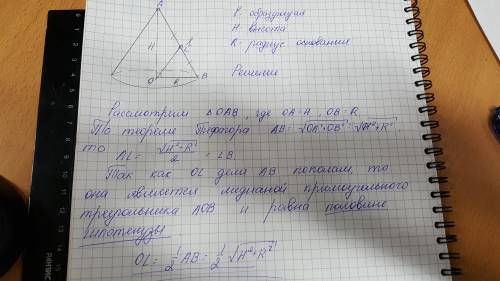 A
ℓ - образующая
H - высота
R - радиус основания
H
L
O
R
B
Решение
Рассмотрим △OAB, где OA=H, OB=R.
По теореме Пифагора AB=√OA²+OB²=√H²+R²,
то AL= √H²+R²/2 = LB.
Так как OL делит AB пополам, то
она является медианой прямоугольного
треугольника AOB и равна половине
гипотенузы
OL= 1/2 AB= 1/2 √H²+R²